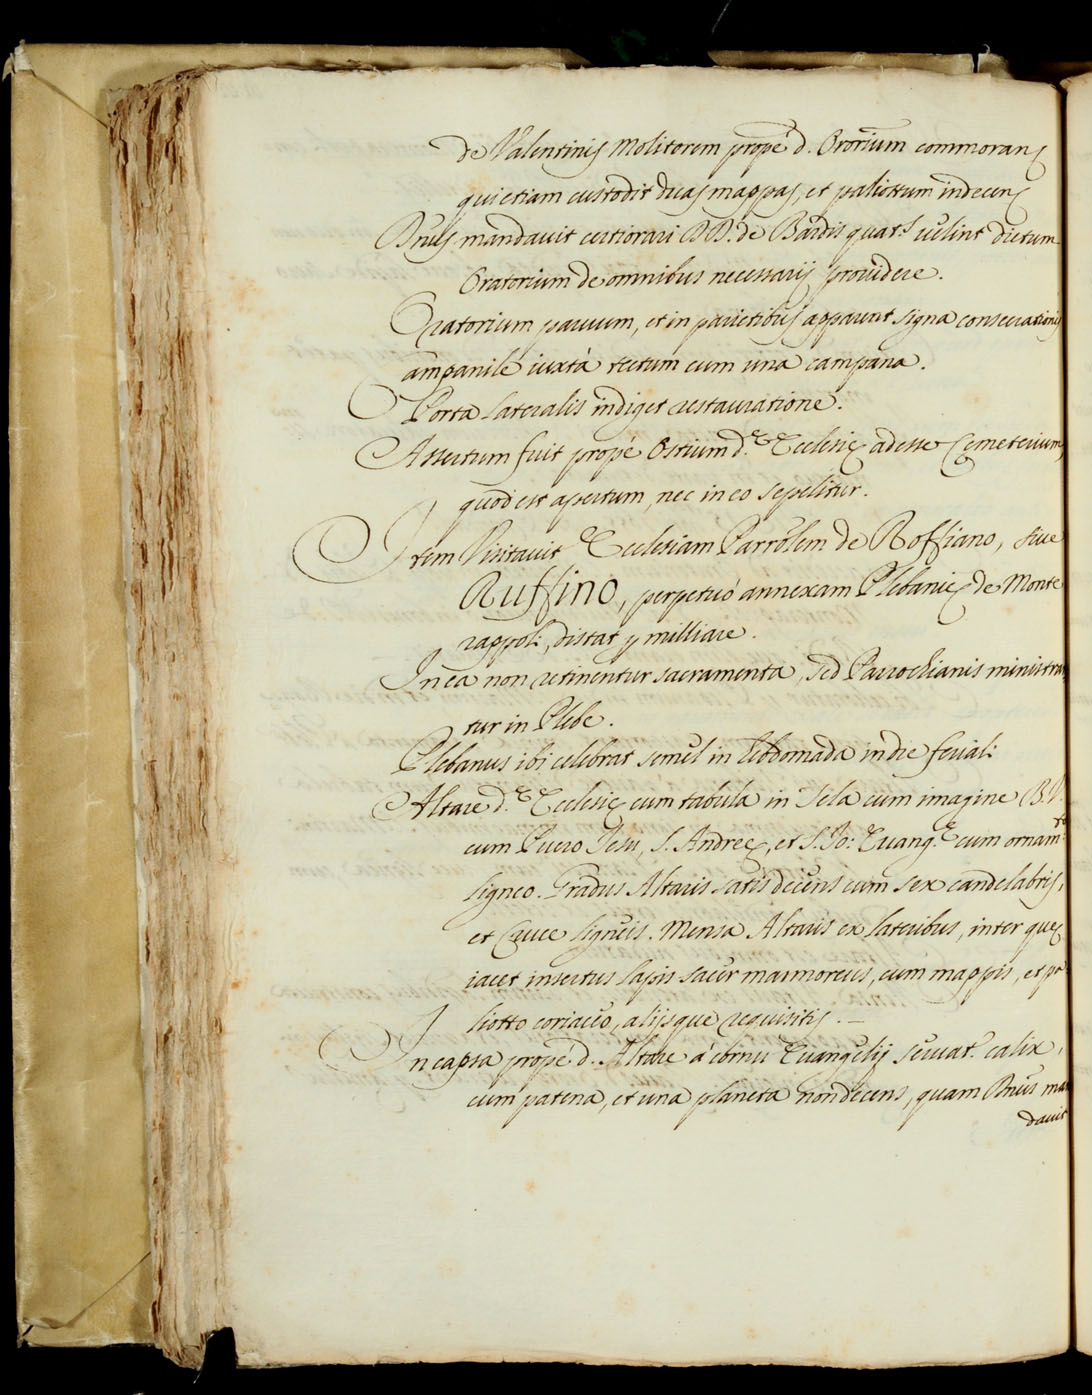 de Valentinis Molitorem propè d. Ororium commorans
qui etiam custodit duas mappas, et paliottum indecens
Dnus mandavit certiorari DD. de Bardis quat.s velint dictum
Oratorium de omnibus necessarijs providere.
Oratorium parvum, et in parietibus apparent signa consecrationis
Campanile iuxtà tectum cum una campana.
Porta lateralis indiget restauratione.
Assertum fuit propè Ostium d.ę Ecclesię adesse Cęmeterium,
quod est apertum, nec in eo sepelitur.
Item Visitavit Ecclesiam Parrolem de Roffiano, sive
Ruffino, perpetuò annexam Plebanię de Monte
rappoli, distat p milliare.
In ea non retinentur sacramenta, sed Parrochianis ministran
tur in Plebe.
Plebanus ibi celebrat semel in hebdomada in die feriali
Altare d.ę Ecclesię cum tabula in Tela cum imagine B.V.
cum Puero Jesu, S. Andreę, et S. Jo: Evang.ę cum ornam.to
ligneo. Gradus Altaris satis decens cum sex candelabris,
et Cruce ligneis. Mensa Altaris ex lateribus, inter quos
iacet insertus lapis sacer marmoreus, cum mappis, et pa
liotto coriaceo, alijsque requisitis. –
In capsa propè d. Altare à cornu Evangelij servat.r calix,
cum patena, et una planeta non decens, quam Dnus man
davit